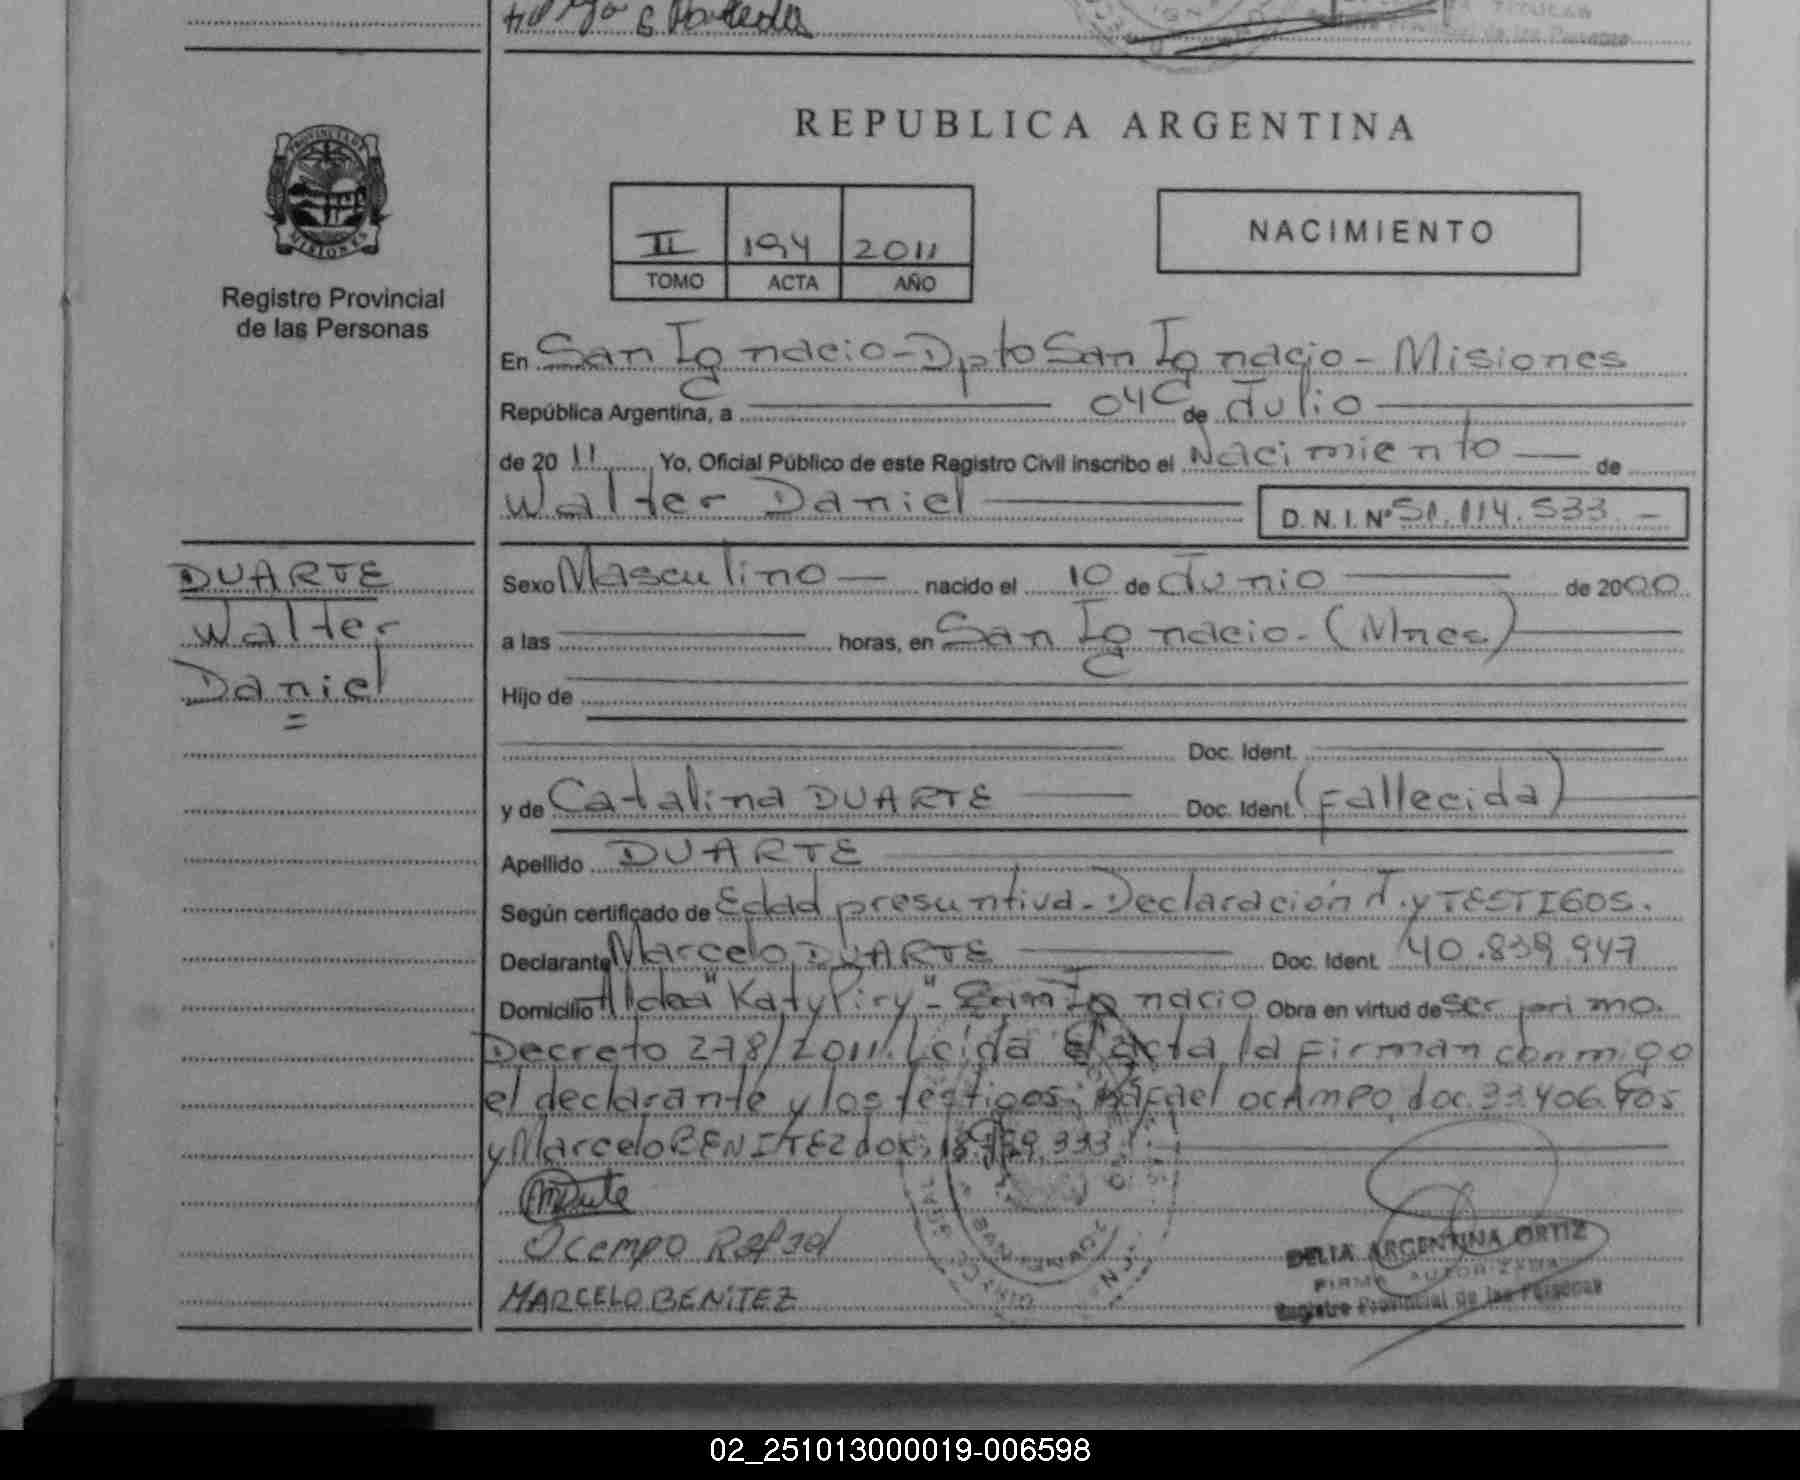 PROVINCIA DE
MISIONES
Registro Provincial
de las Personas
REPUBLICA ARGENTINA
II 194 2011
TOMO ACTA AÑO
NACIMIENTO
En San Ignacio - Dpto San Ignacio - Misiones
República Argentina, a 04 de Julio
de 2011 Yo, Oficial Público de este Registro Civil inscribo el Nacimiento de
Walter Daniel D.N.I.Nº 51.114.533.-
DUARTE
Walter
Daniel
Sexo Masculino nacido el 10 de Junio de 2000
a las horas, en San Ignacio. (Mnes)
Hijo de
Doc. Ident.
y de Catalina DUARTE Doc. Ident. (Fallecida)
Apellido DUARTE
Según certificado de Edad presuntiva - Declaración J. y TESTIGOS.
Declarante Marcelo DUARTE Doc. Ident. 40.839.947
Domicilio Aldea "Katy Piry" - San Ignacio Obra en virtud de ser primo.
Decreto 278/2011. Leida el acta la firman conmigo
el declarante y los testigos: Rafael OCAMPO doc. 33.406.
y Marcelo BENITEZ doc.
Ocampo Rafael
MARCELO BENITEZ
DELIA ARGENTINA ORTIZ
FIRMA AUTORIZADA
Registro Provincial de las Personas
02_251013000019-006598